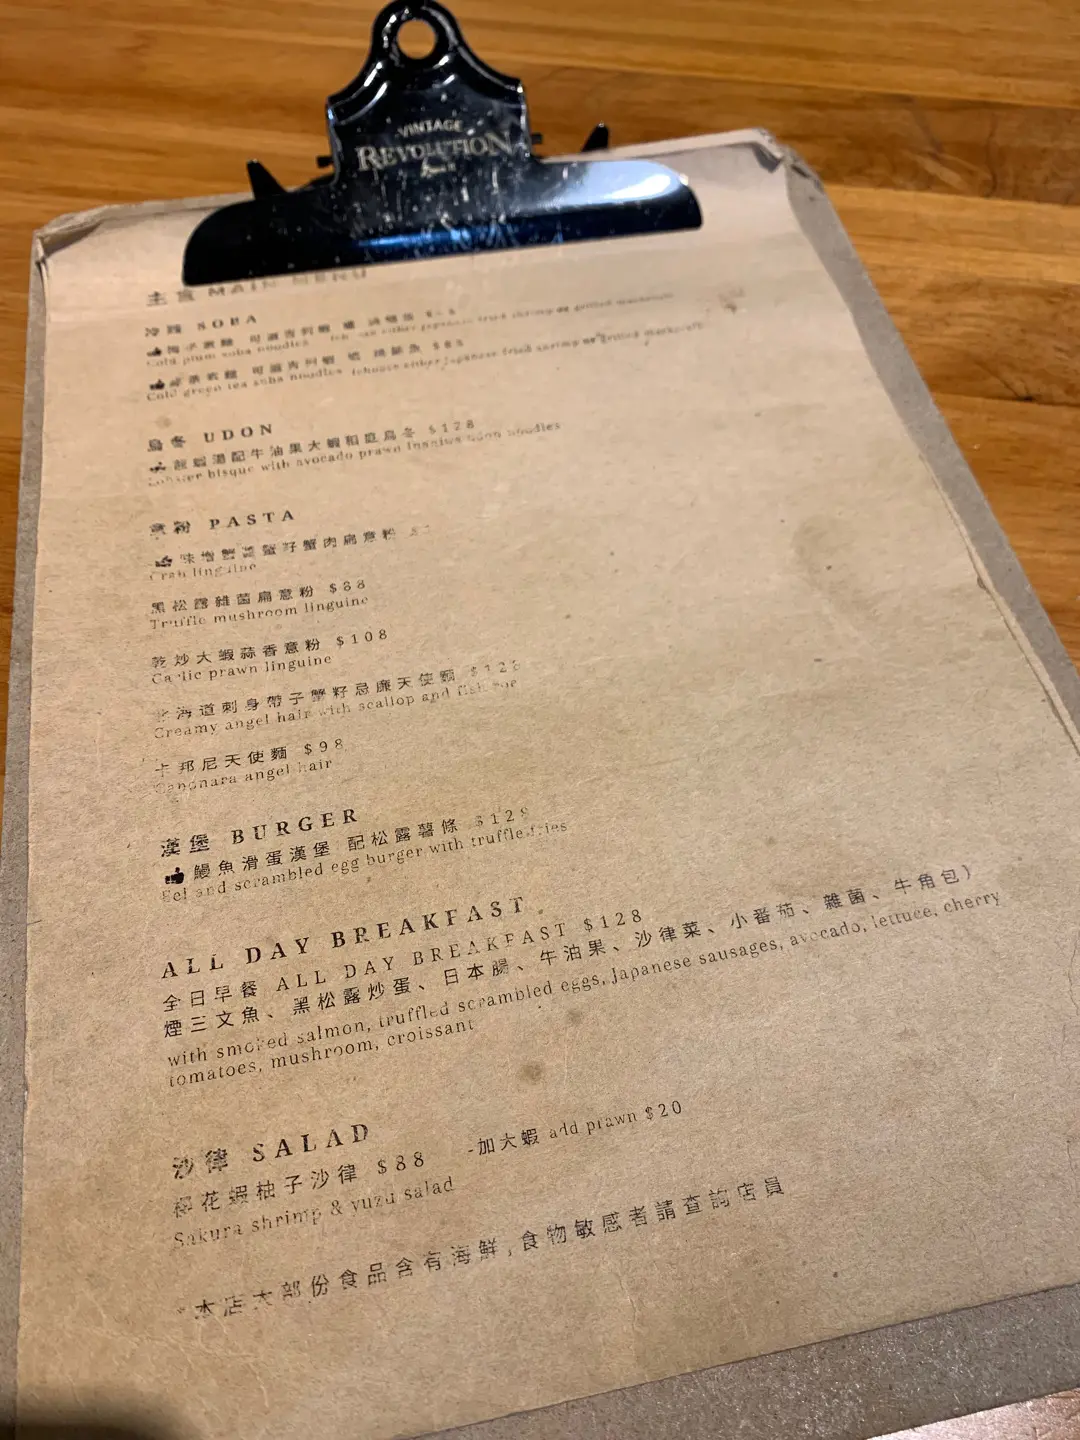 VINTAGE
REVOLUTION
主食 MAIN MENU
冷麵 SOBA
Cold plum soba noodles japanese fried shrimp or grilled
$88
Cold green tea soba noodles (choose either japanese fried shrimp or grilled mackerel)
烏冬 UDON
龍蝦湯配牛油果大蝦稻庭烏冬 $128
Lobster bisque with avocado prawn Inaniwa udon noodles
意粉 PASTA
味增蟹羹蟹籽蟹肉扁意粉
Crab linguine
黑松露雜菌扁意粉 $88
Truffle mushroom linguine
乾炒大蝦蒜香意粉 $108
Garlic prawn linguine
北海道刺身帶子蟹籽忌廉天使麵 $128
Creamy angel hair with scallop and fish roe
卡邦尼天使麵 $98
angel hair
漢堡 BURGER
鰻魚滑蛋漢堡 配松露薯條 $129
Eel and scrambled egg burger with truffle fries
ALL DAY BREAKFAST
全日早餐 ALL DAY BREAKFAST $128
煙三文魚、黑松露炒蛋、日本腸、牛油果、沙律菜、小番茄、雜菌、牛角包)
with smoked salmon, truffled scrambled eggs, Japanese sausages, avocado, lettuce, cherry
tomatoes, mushroom, croissant
沙律 SALAD
櫻花蝦柚子沙律 $88 -加大蝦 add prawn $20
Sakura shrimp & yuzu salad
*本店大部份食品含有海鮮,食物敏感者請查詢店員